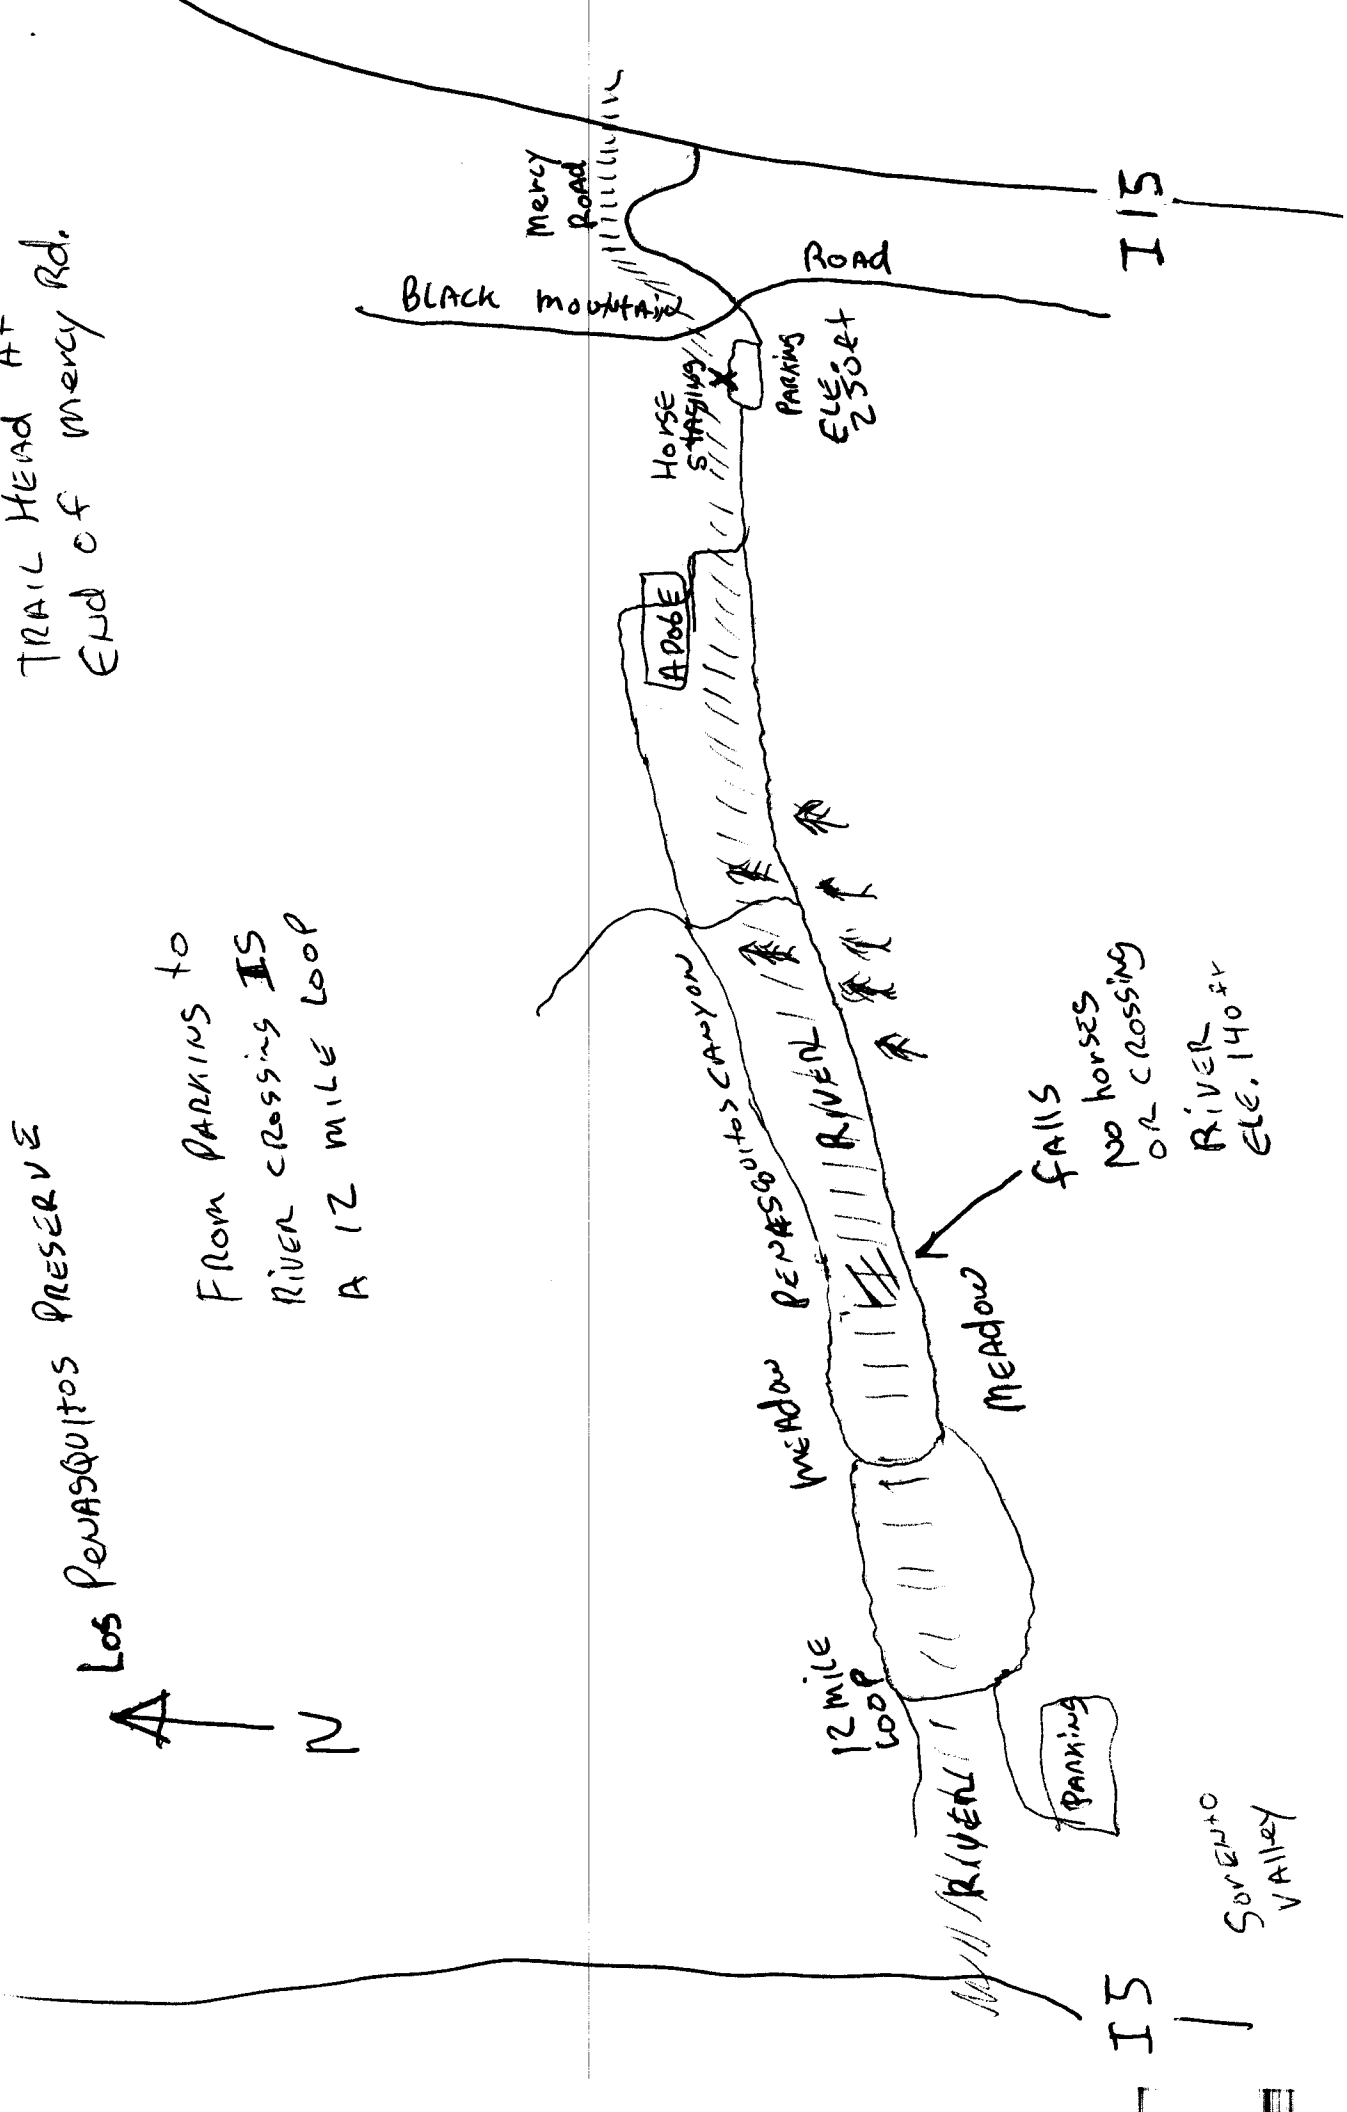 Los PENASQUITOS PRESERVE
TRAIL HEAD AT
END OF MERCY Rd.
N
FROM PARKING to
RIVER CROSSING IS
A 12 MILE LOOP
MERCY
ROAD
BLACK MOUNTAIN
ROAD
HORSE
STAGING
X
PARKING
ELE.
230 Ft
ADOBE
PENASQUITOS CANYON
RIVER
MEADOW
MEADOW
FALLS
NO horses
OR CROSSING
RIVER
ELE. 140 ft
12 MILE
LOOP
RIVER
PARKING
SORENTO
VAlley
I 5
I 15